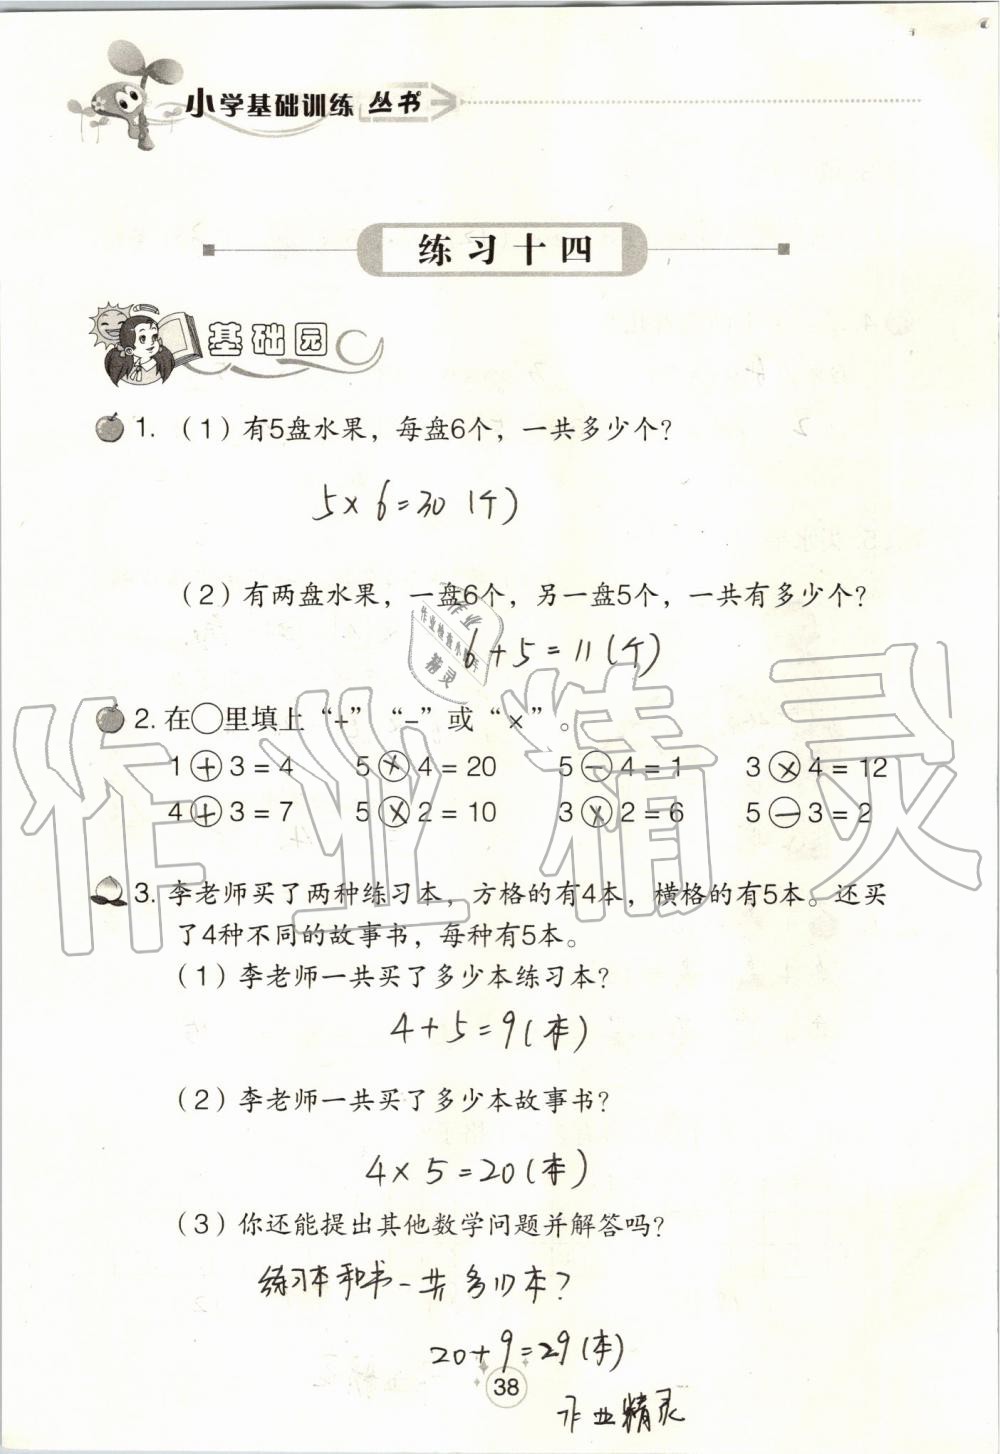 小学基础训练 丛书
练习十四
基础园
1. （1）有5盘水果，每盘6个，一共多少个？
5×6=30（个）
（2）有两盘水果，一盘6个，另一盘5个，一共有多少个？
6+5=11（个）
2. 在○里填上“+”“-”或“×”。
1⊕3=4 5⊗4=20 5⊖4=1 3⊗4=12
4⊕3=7 5⊗2=10 3⊗2=6 5⊖3=2
3. 李老师买了两种练习本，方格的有4本，横格的有5本。还买
了4种不同的故事书，每种有5本。
（1）李老师一共买了多少本练习本？
4+5=9（本）
（2）李老师一共买了多少本故事书？
4×5=20（本）
（3）你还能提出其他数学问题并解答吗？
练习本和书一共多少本？
20+9=29（本）
38
作业精灵
作业精灵
作业
作业检查小助手
精灵